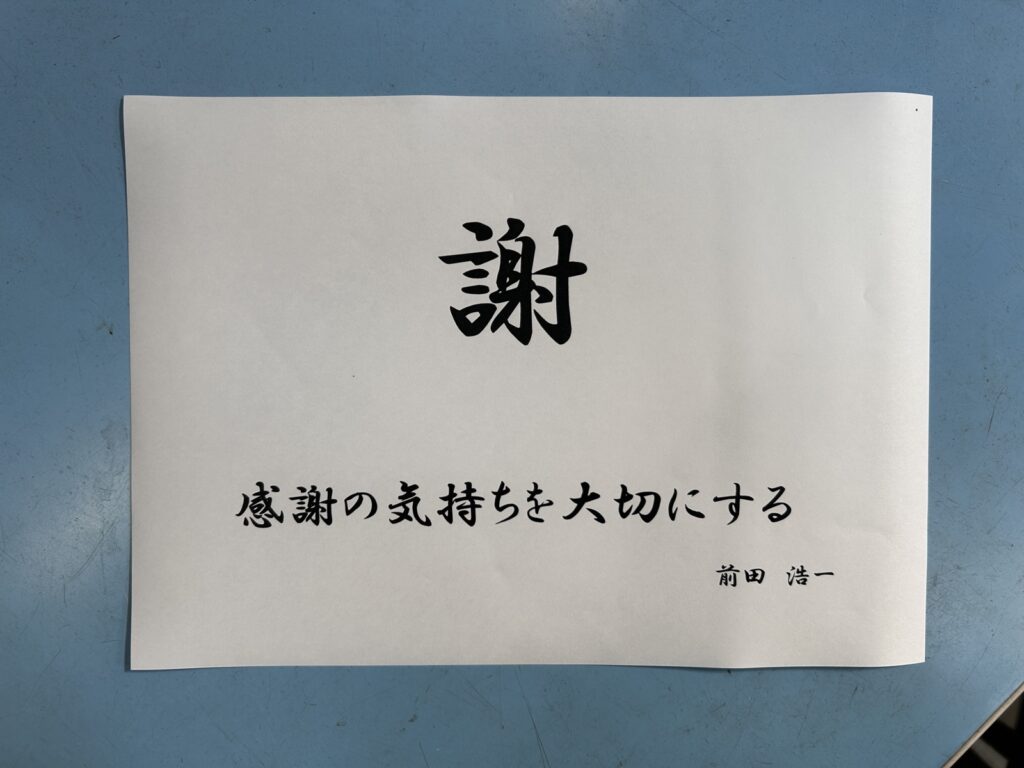 謝
感謝の気持ちを大切にする
前田　浩一